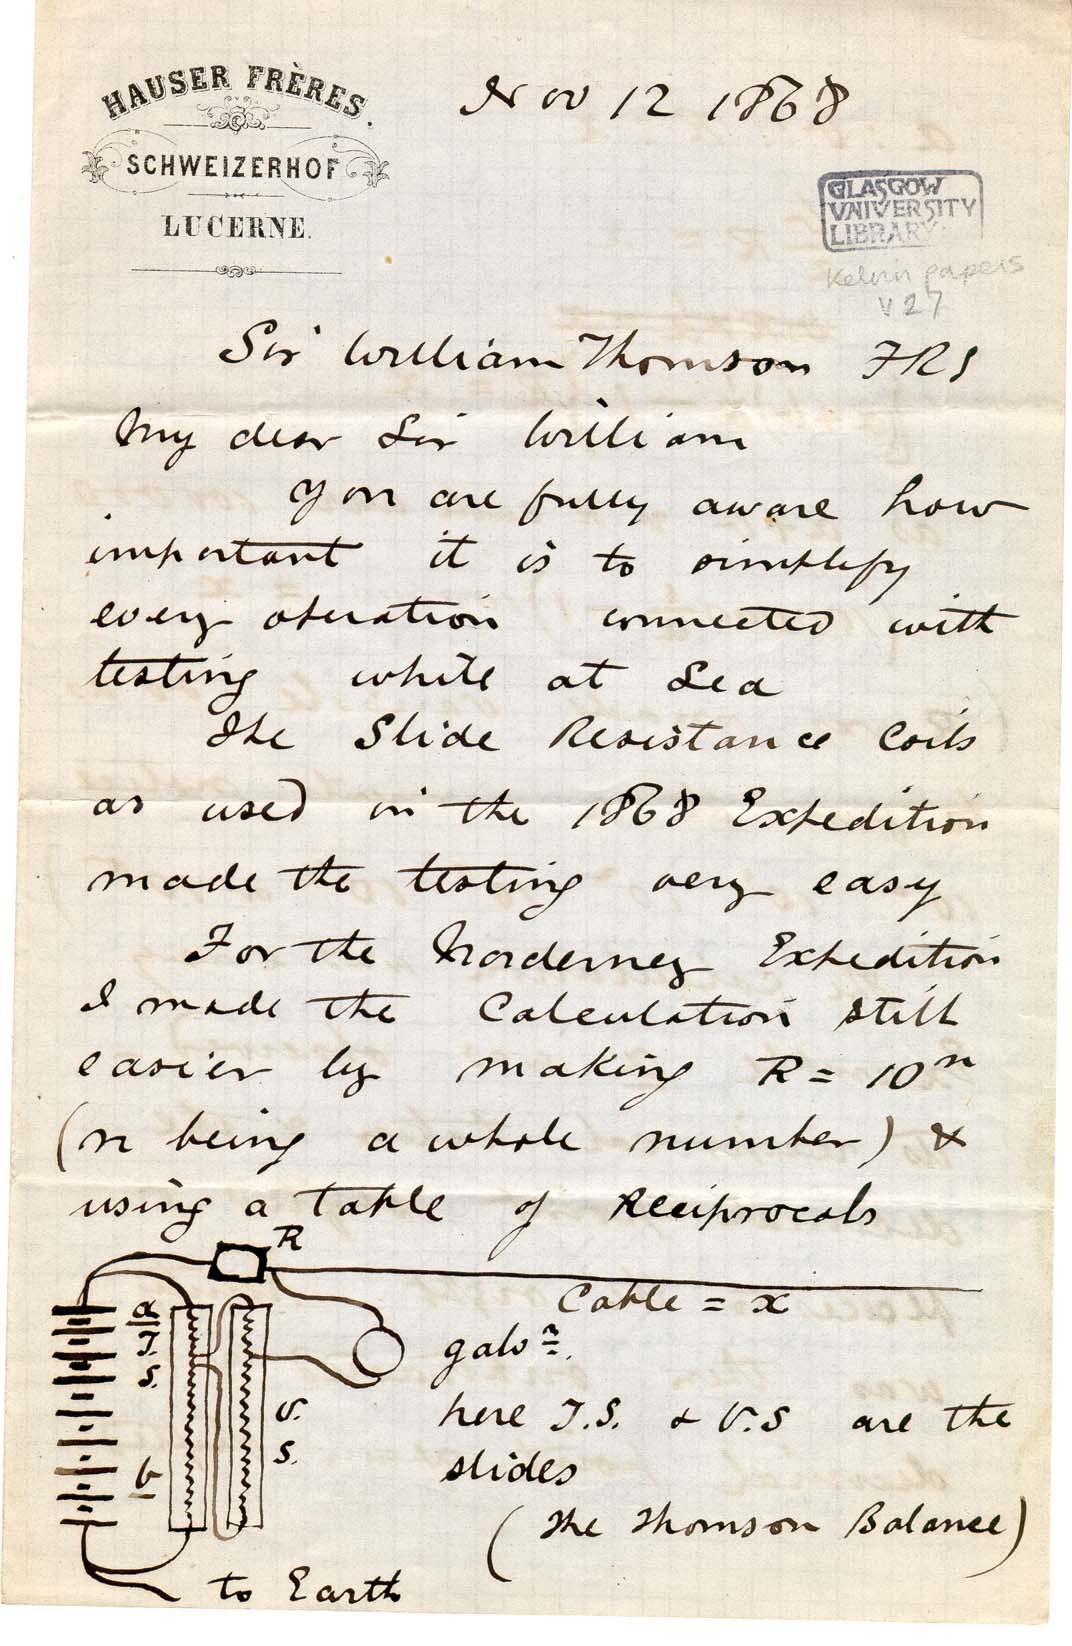 HAUSER FRÈRES.
SCHWEIZERHOF
LUCERNE.
Nov 12 1868
GLASGOW
UNIVERSITY
LIBRARY
Kelvin papers
V27
Sir William Thomson FRS
My dear Sir William
You are fully aware how
important it is to simplify
every operation connected with
testing while at Sea
The Slide Resistance Coils
as used in the 1868 Expedition
made the testing very easy
For the Norderney Expedition
I made the Calculation still
easier by making R = 10ⁿ
(n being a whole number) &
using a table of Reciprocals
R
Cable = x
a
T.
S.
galvʳ.
V.
S.
b
here T.S. & V.S are the
slides
(The Thomson Balance)
to Earth